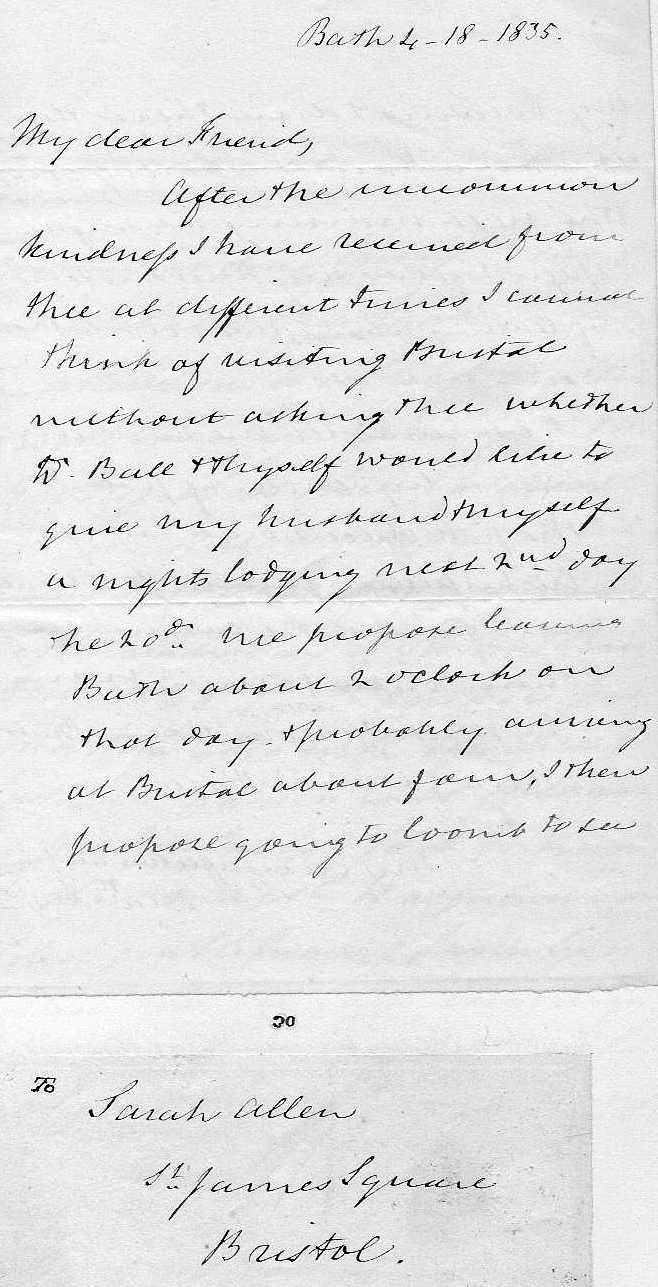 Bath 4-18-1835.
My dear Friend,
After the uncommon
kindness I have received from
thee at different times I cannot
think of visiting Bristol
without asking thee whether
Wm. Ball & thyself would like to
give my husband & myself
a nights lodging next 2nd day
he 20th. we propose leaving
Bath about 2 oclock on
that day & probably arriving
at Bristol about four, I then
propose going to Coomb to see
To
Sarah Allen
St. James Square
Bristol.